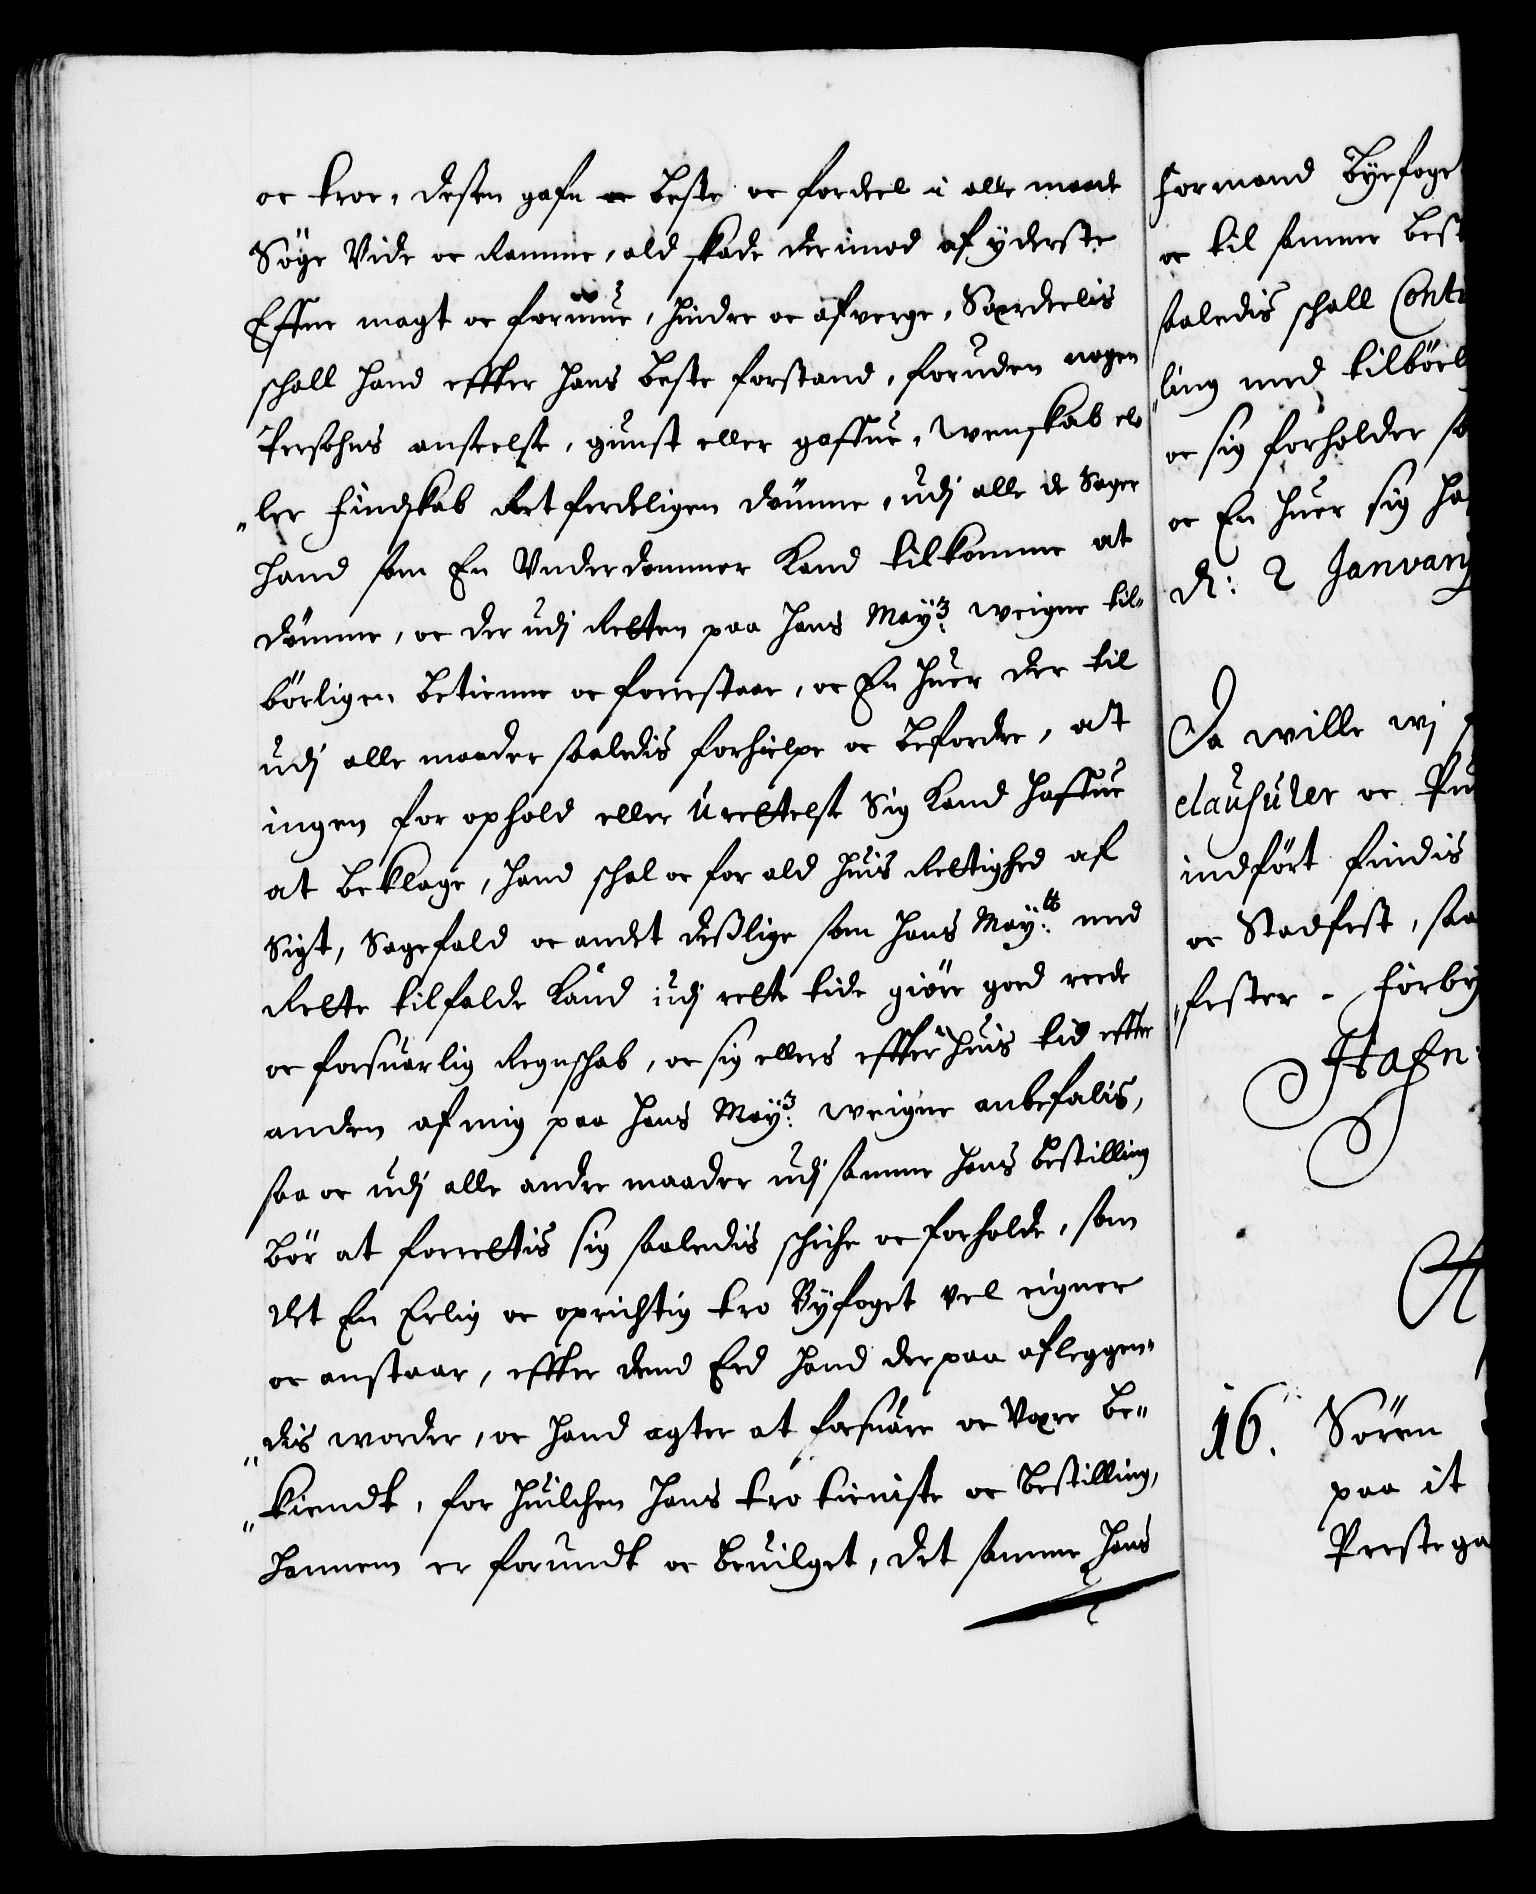 oc troe, desten gafn oc beste oc fordeel i alle maade
Söge Vide oc Ramme, ald skade derimod af yderste
Effne magt oc formue, hindre oc afverge, Særdeelis
schall hand effter hans beste forstand, foruden nogen
Persohns anseelse, gunst eller gaffue, wenskab el„
„ler Findskab Retferdeligen dömme, udj alle de Sager
hand som En Underdommer Kand tilkomme at
dömme, oc der udj Retten paa Hans Mayts: weigne til„
börligen betienne oc forrestaae, oc En huer der til
udj alle maader saaledis forhielpe oc befordre, at
ingen for ophold eller Urettelse Sig Kand haffue
at beklage, hand schal oc for ald huis Rettighed af
Sigt, Sagefald oc andet desslige som Hans Mayts: med
Rette tilfalde Kand udj rette tide giöre goed reede
oc forsuarlig Regnschab, oc sig ellers effter huis tid effter
anden af mig paa Hans Mayts: weigne anbefalis,
saa oc udj alle andre maader udj samme hans bestilling
bör at forrettis sig saaledis schiche oc forholde, som
det En Erlig oc oprichtig tro Byfoget vel eigner
oc anstaar, effter dend Eed hand derpaa afleggen„
„dis worder, oc hand agter at forsuare oc Være be„
„kiendt, for huilchen hans tro tieniste oc bestilling,
hannem er forundt oc beuilget, det samme hans
Formand Byefoge
oc til samme best
saaledis schall Conti
„ling med tilbörl
oc sig forholder sa
oc En huer sig ha
d: 2 Januarij
Da wille wj
clausuler oc Pu
indfört findis
oc Stadfest, saa
„fester - Forby
Hafn:
16. Sören
paa it
Prestega